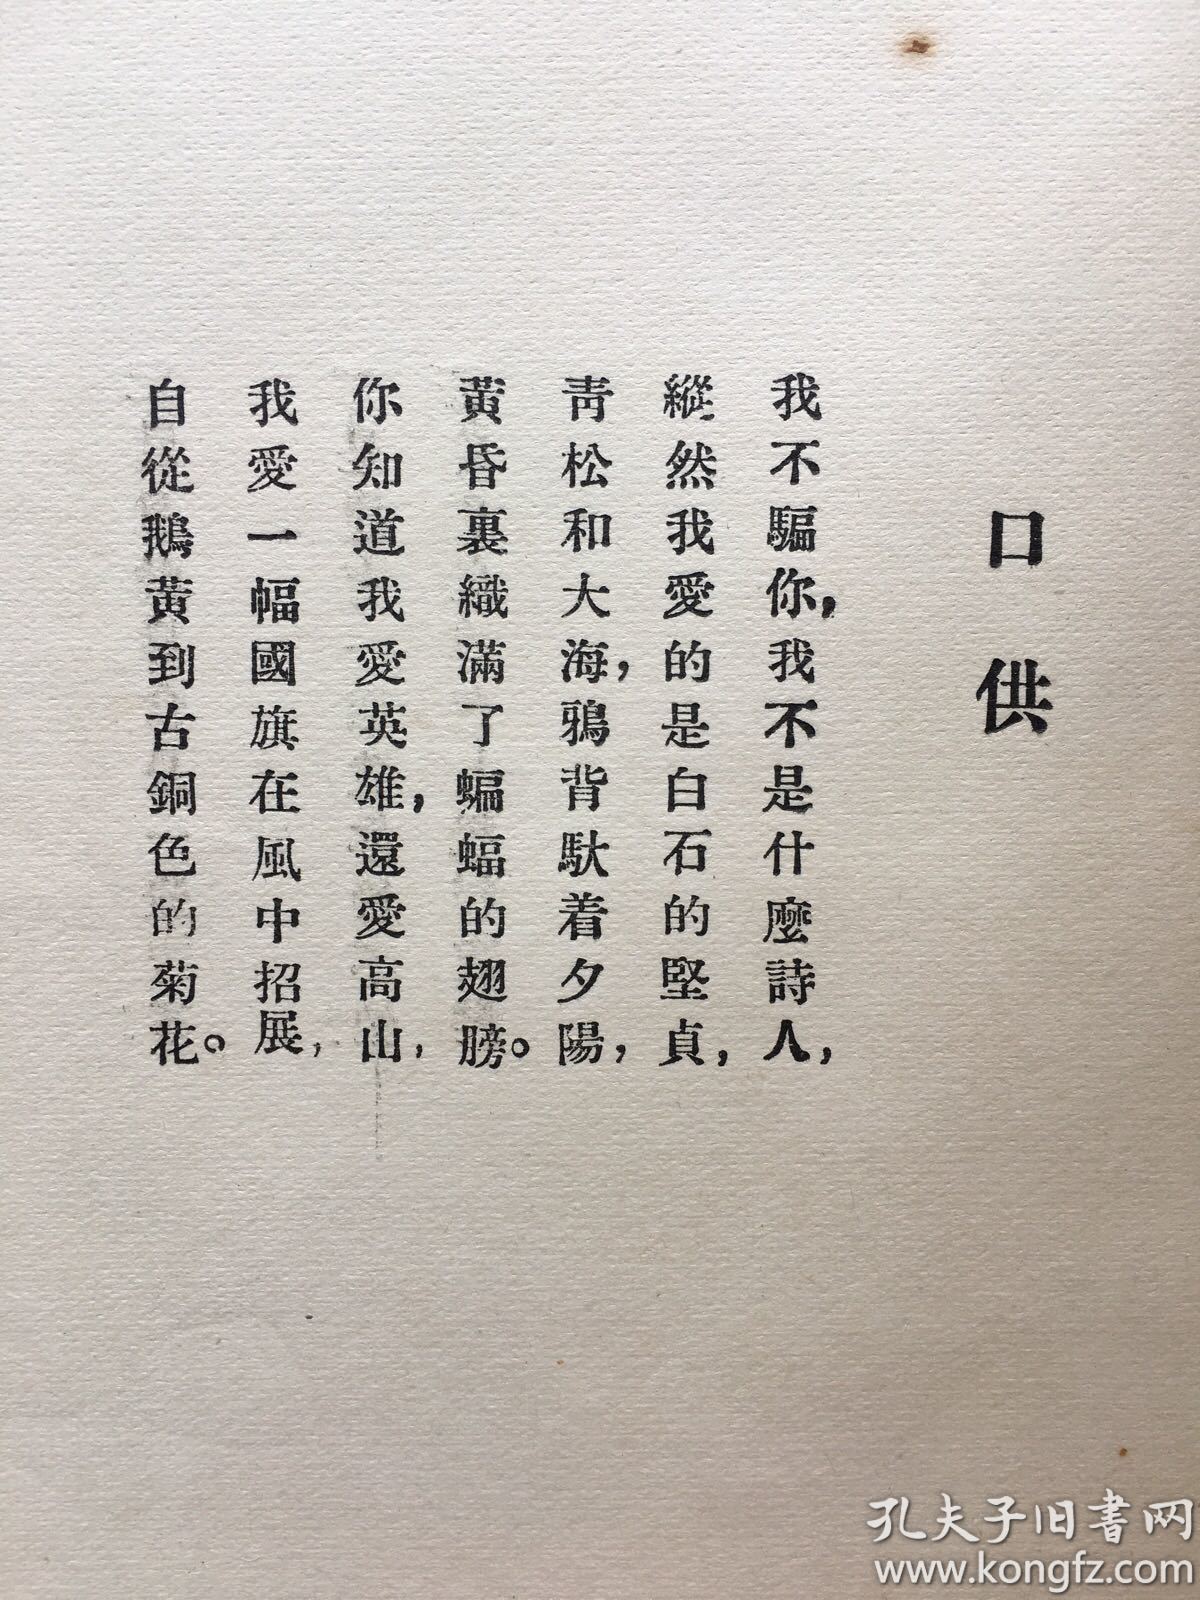 口供
我不騙你，我不是什麼詩人，
縱然我愛的是白石的堅貞，
靑松和大海，鴉背馱着夕陽，
黃昏裏織滿了蝙蝠的翅膀。
你知道我愛英雄，還愛高山，
我愛一幅國旗在風中招展，
自從鵝黃到古銅色的菊花。
孔夫子旧書网
www.kongfz.com